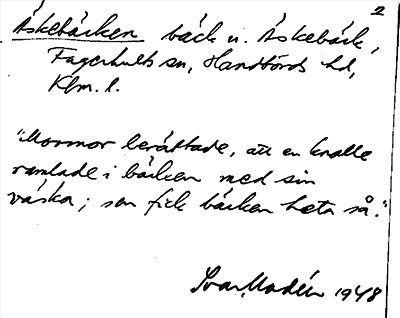 2
Åskebäcken bäck n. Åskebäck,
Fagerhults sn, Handbörds hd,
Klm. l.
"Mormor berättade, att en knalle
ramlade i bäcken med sin
väska; sen fick bäcken heta så."
Ivar Modéer 1948